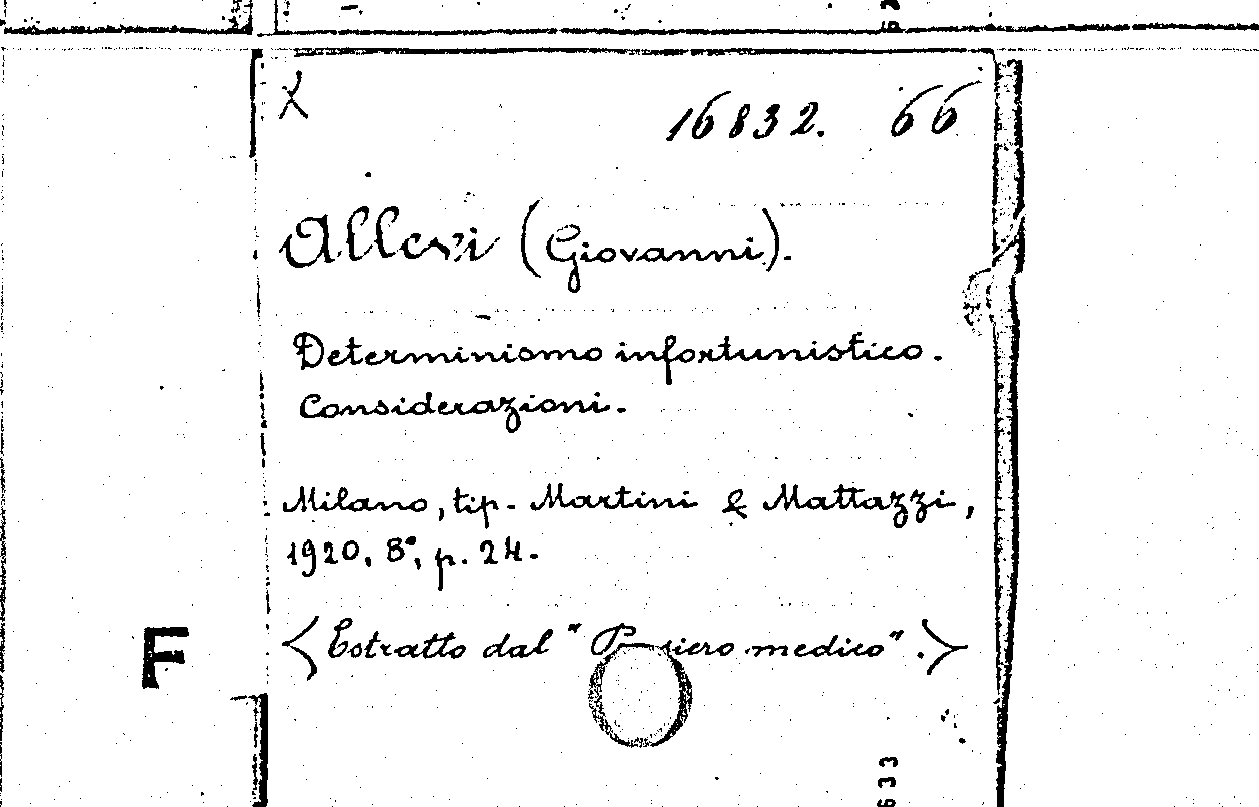 X
16832. 66
Allevi (Giovanni).
Determinismo infortunistico.
Considerazioni.
Milano, tip. Martini & Mattazzi,
1920, 8°, p. 24.
F
<Estratto dal " medico".>
633